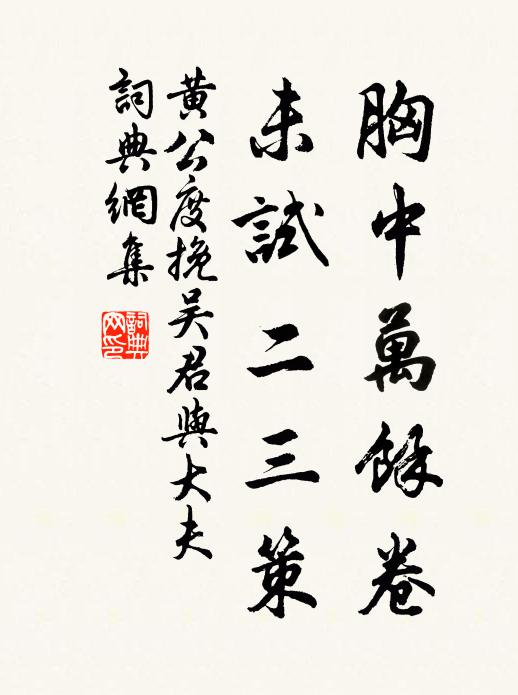 胸中萬餘卷
未試二三策
黃公度挽吳君與大夫
詞典網集
詞典網印